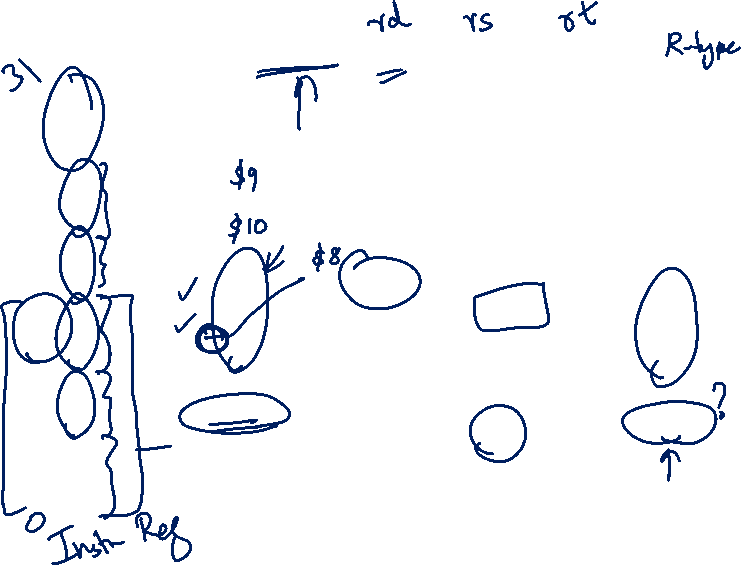 rd rs rt
R-type
31
$9
$10
$8
?
0
Instr Reg